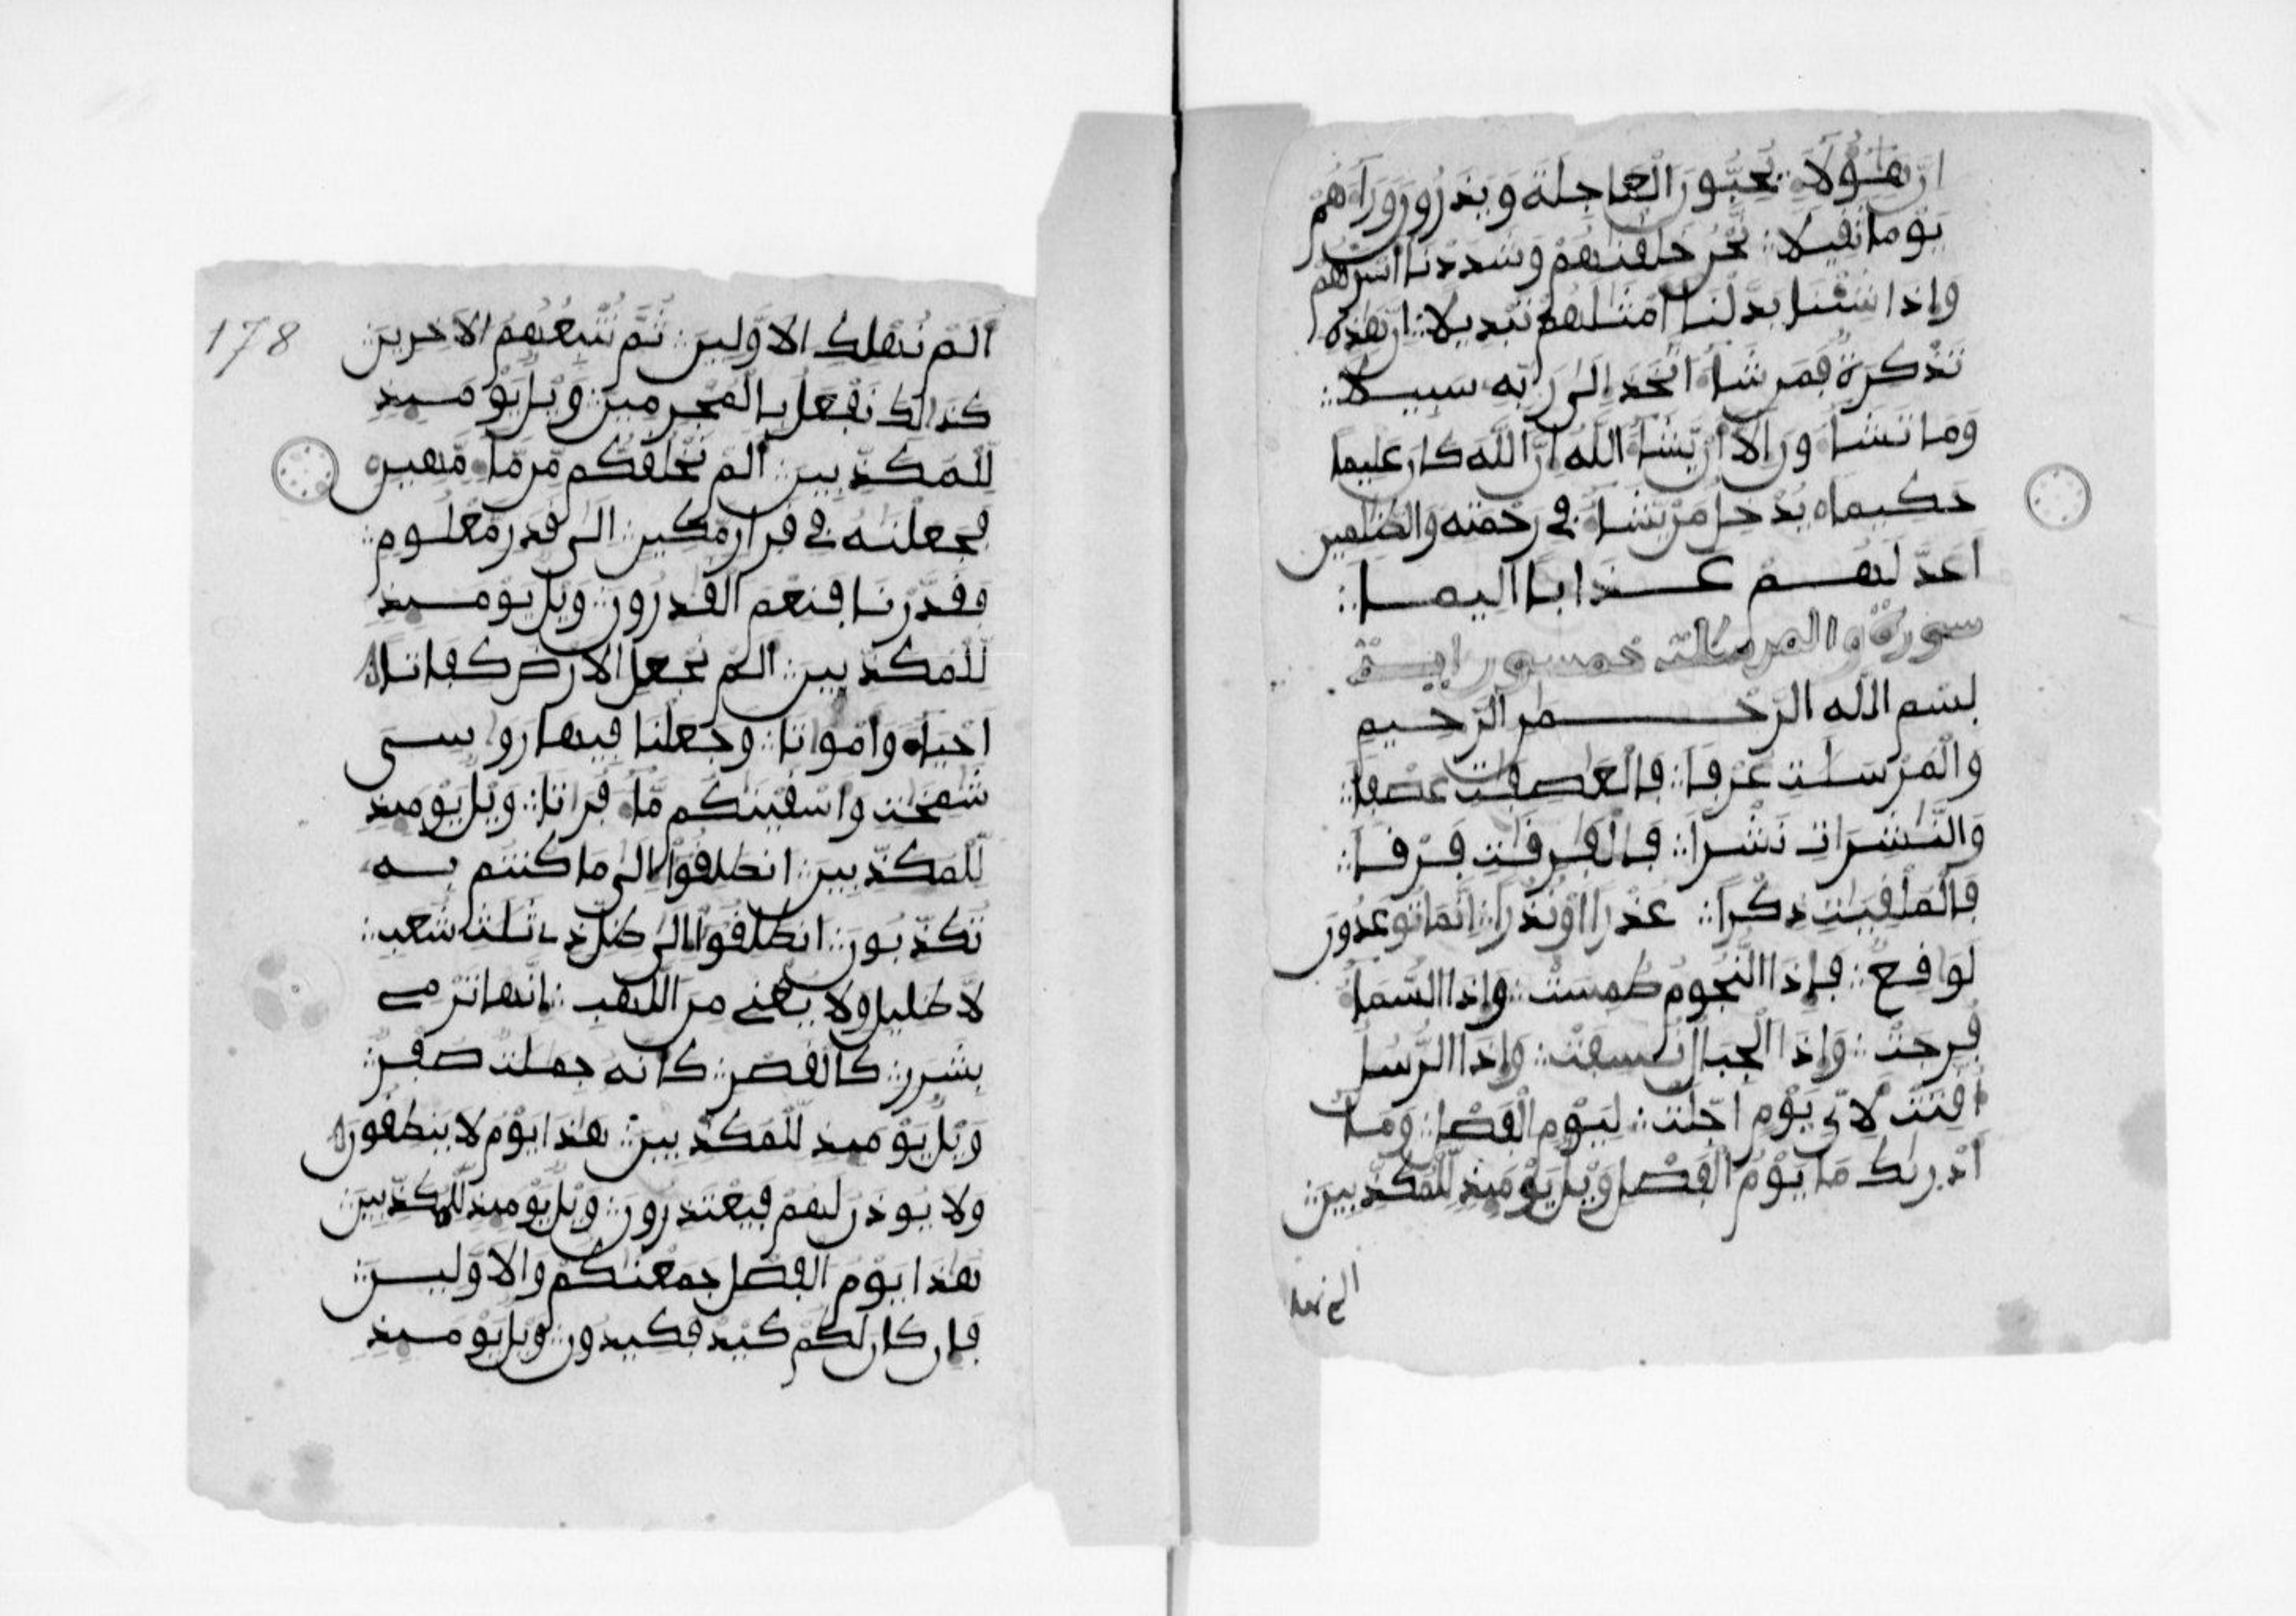 ان هؤلاء يحبون العاجلة ويذرون وراءهم
يوما ثقيلا نحن خلقنهم وشددنا أسرهم
وإذا شئنا بدلنا أمثلهم تبديلا ان هذه
تذكرة فمن شاء اتخذ إلى ربه سبيلا
وما تشاءون إلا أن يشاء الله ان الله كان عليما
حكيما يدخل من يشاء في رحمته والظلمين
أعد لهم عذابا أليما
سورة والمرسلت خمسون اية
بسم الله الرحمن الرحيم
والمرسلت عرفا فالعصفت عصفا
والنشرات نشرا فالفرقت فرقا
فالملقيت ذكرا عذرا أو نذرا إنما توعدون
لوقع فإذا النجوم طمست وإذا السماء
فرجت وإذا الجبال نسفت وإذا الرسل
أقتت لأي يوم أجلت ليوم الفصل وما
أدريك ما يوم الفصل ويل يوميذ للمكذبين
الم نهلك
178
ألم نهلك الأولين ثم نتبعهم الآخرين
كذلك نفعل بالمجرمين ويل يوميذ
للمكذبين ألم نخلقكم من ماء مهين
فجعلنه في قرار مكين إلى قدر معلوم
فقدرنا فنعم القدرون ويل يوميذ
للمكذبين ألم نجعل الأرض كفاتا
أحياء وأمواتا وجعلنا فيها روسي
شمخت وأسقينكم ماء فراتا ويل يوميذ
للمكذبين انطلقوا إلى ما كنتم به
تكذبون انطلقوا إلى ظل ذي ثلث شعب
لا ظليل ولا يغني من اللهب إنها ترمي
بشرر كالقصر كأنه جملت صفر
ويل يوميذ للمكذبين هذا يوم لا ينطقون
ولا يوذن لهم فيعتذرون ويل يوميذ للمكذبين
هذا يوم الفصل جمعنكم والأولين
فإن كان لكم كيد فكيدون ويل يوميذ